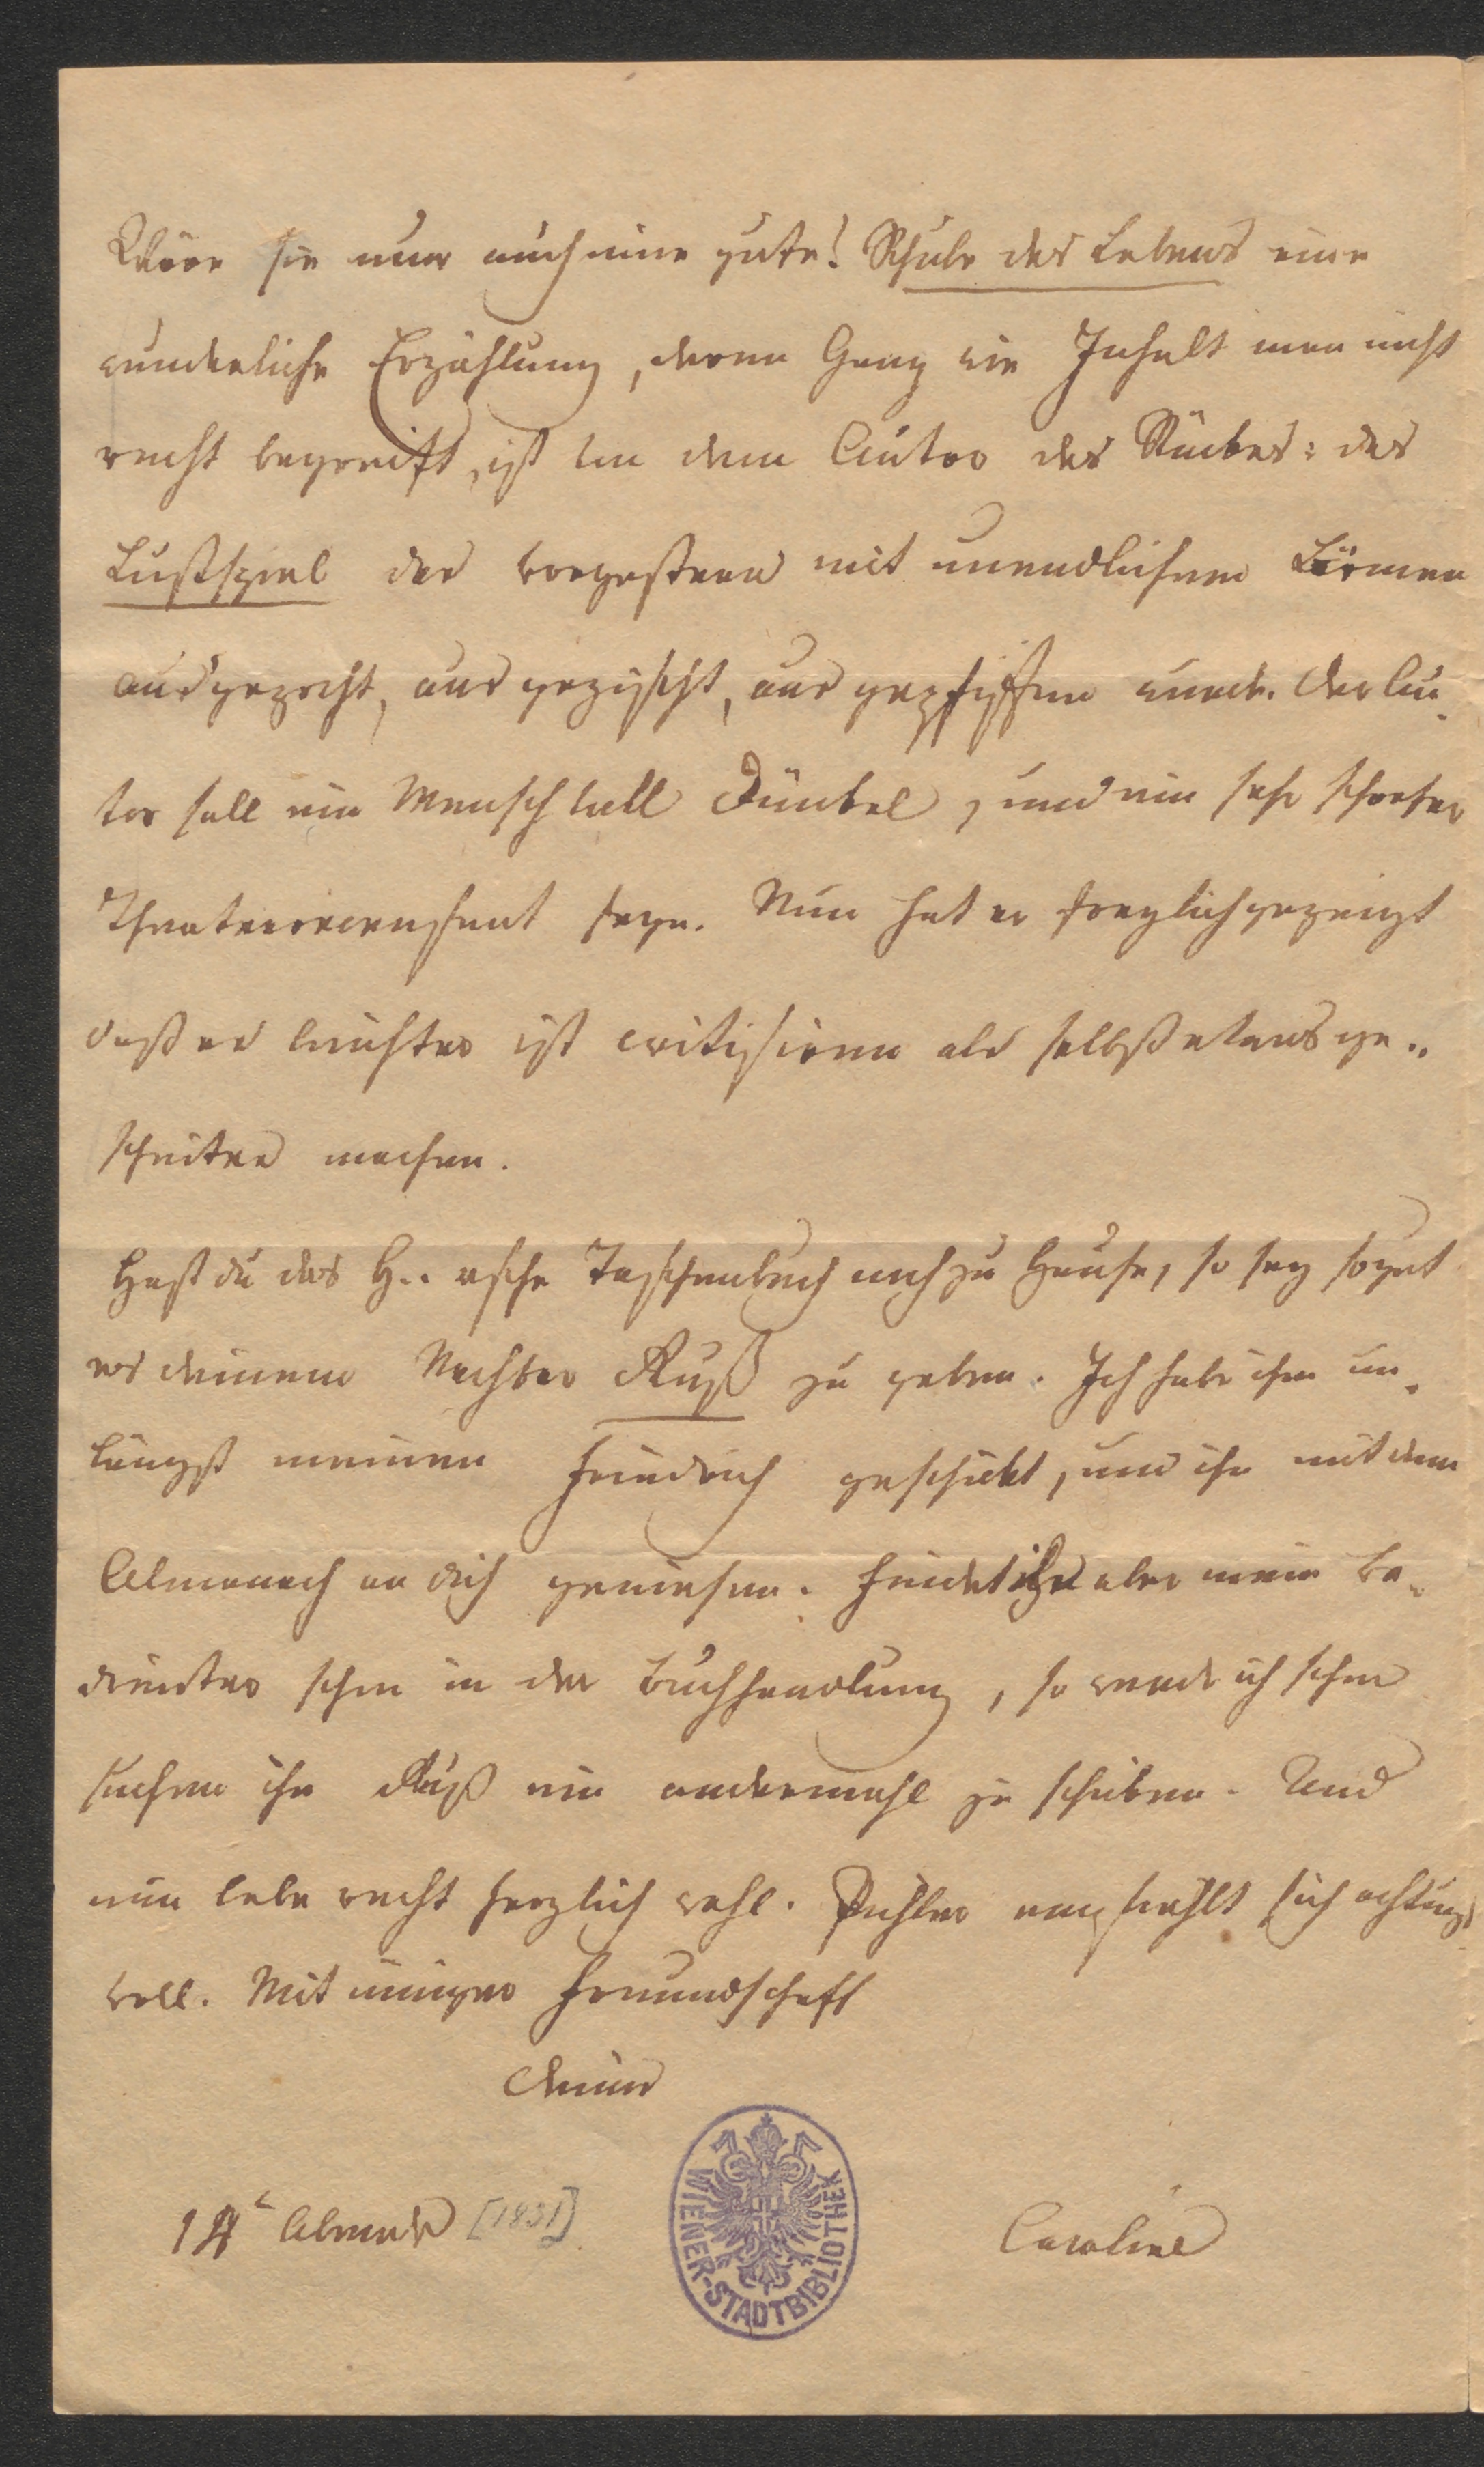 Wäre sie nur auch eine gute! Schule des Lebens eine
wunderliche Erzählung, deren Gang wie Inhalt man nicht
recht begreift, ist von dem Autor des Stückes: das
Lustspiel das vorgestern mit unendlichem Lärmen
ausgepocht, ausgezischt, ausgepfiffen wurde. Der Au-
tor soll ein Mensch voll Dünkel, und ein sehr scharfer
Theaterrecensent seyn. Nun hat er freylich gezeigt
daß es leichter ist critisiren als selbst etwas ge-
scheites machen.
Hast du das H.. rsche Taschenbuch noch zu Hause, so sey so gut
es deinem Nachbar Ruß zu geben. Ich habe ihm un-
längst meinen Friedrich geschickt, und ihn mit dem
Almanach an dich gewiesen. Findet ihn aber mein Be-
dienter schon in der Buchhandlung, so werde ich schon
suchen ihn Ruß ein andermahl zu schicken. Und
nun lebe recht herzlich wohl. Pichler empfiehlt sich achtungs
voll. Mit inniger Freundschaft
Deine
14t Abends [1831]
Caroline
WIENER-STADTBIBLIOTHEK